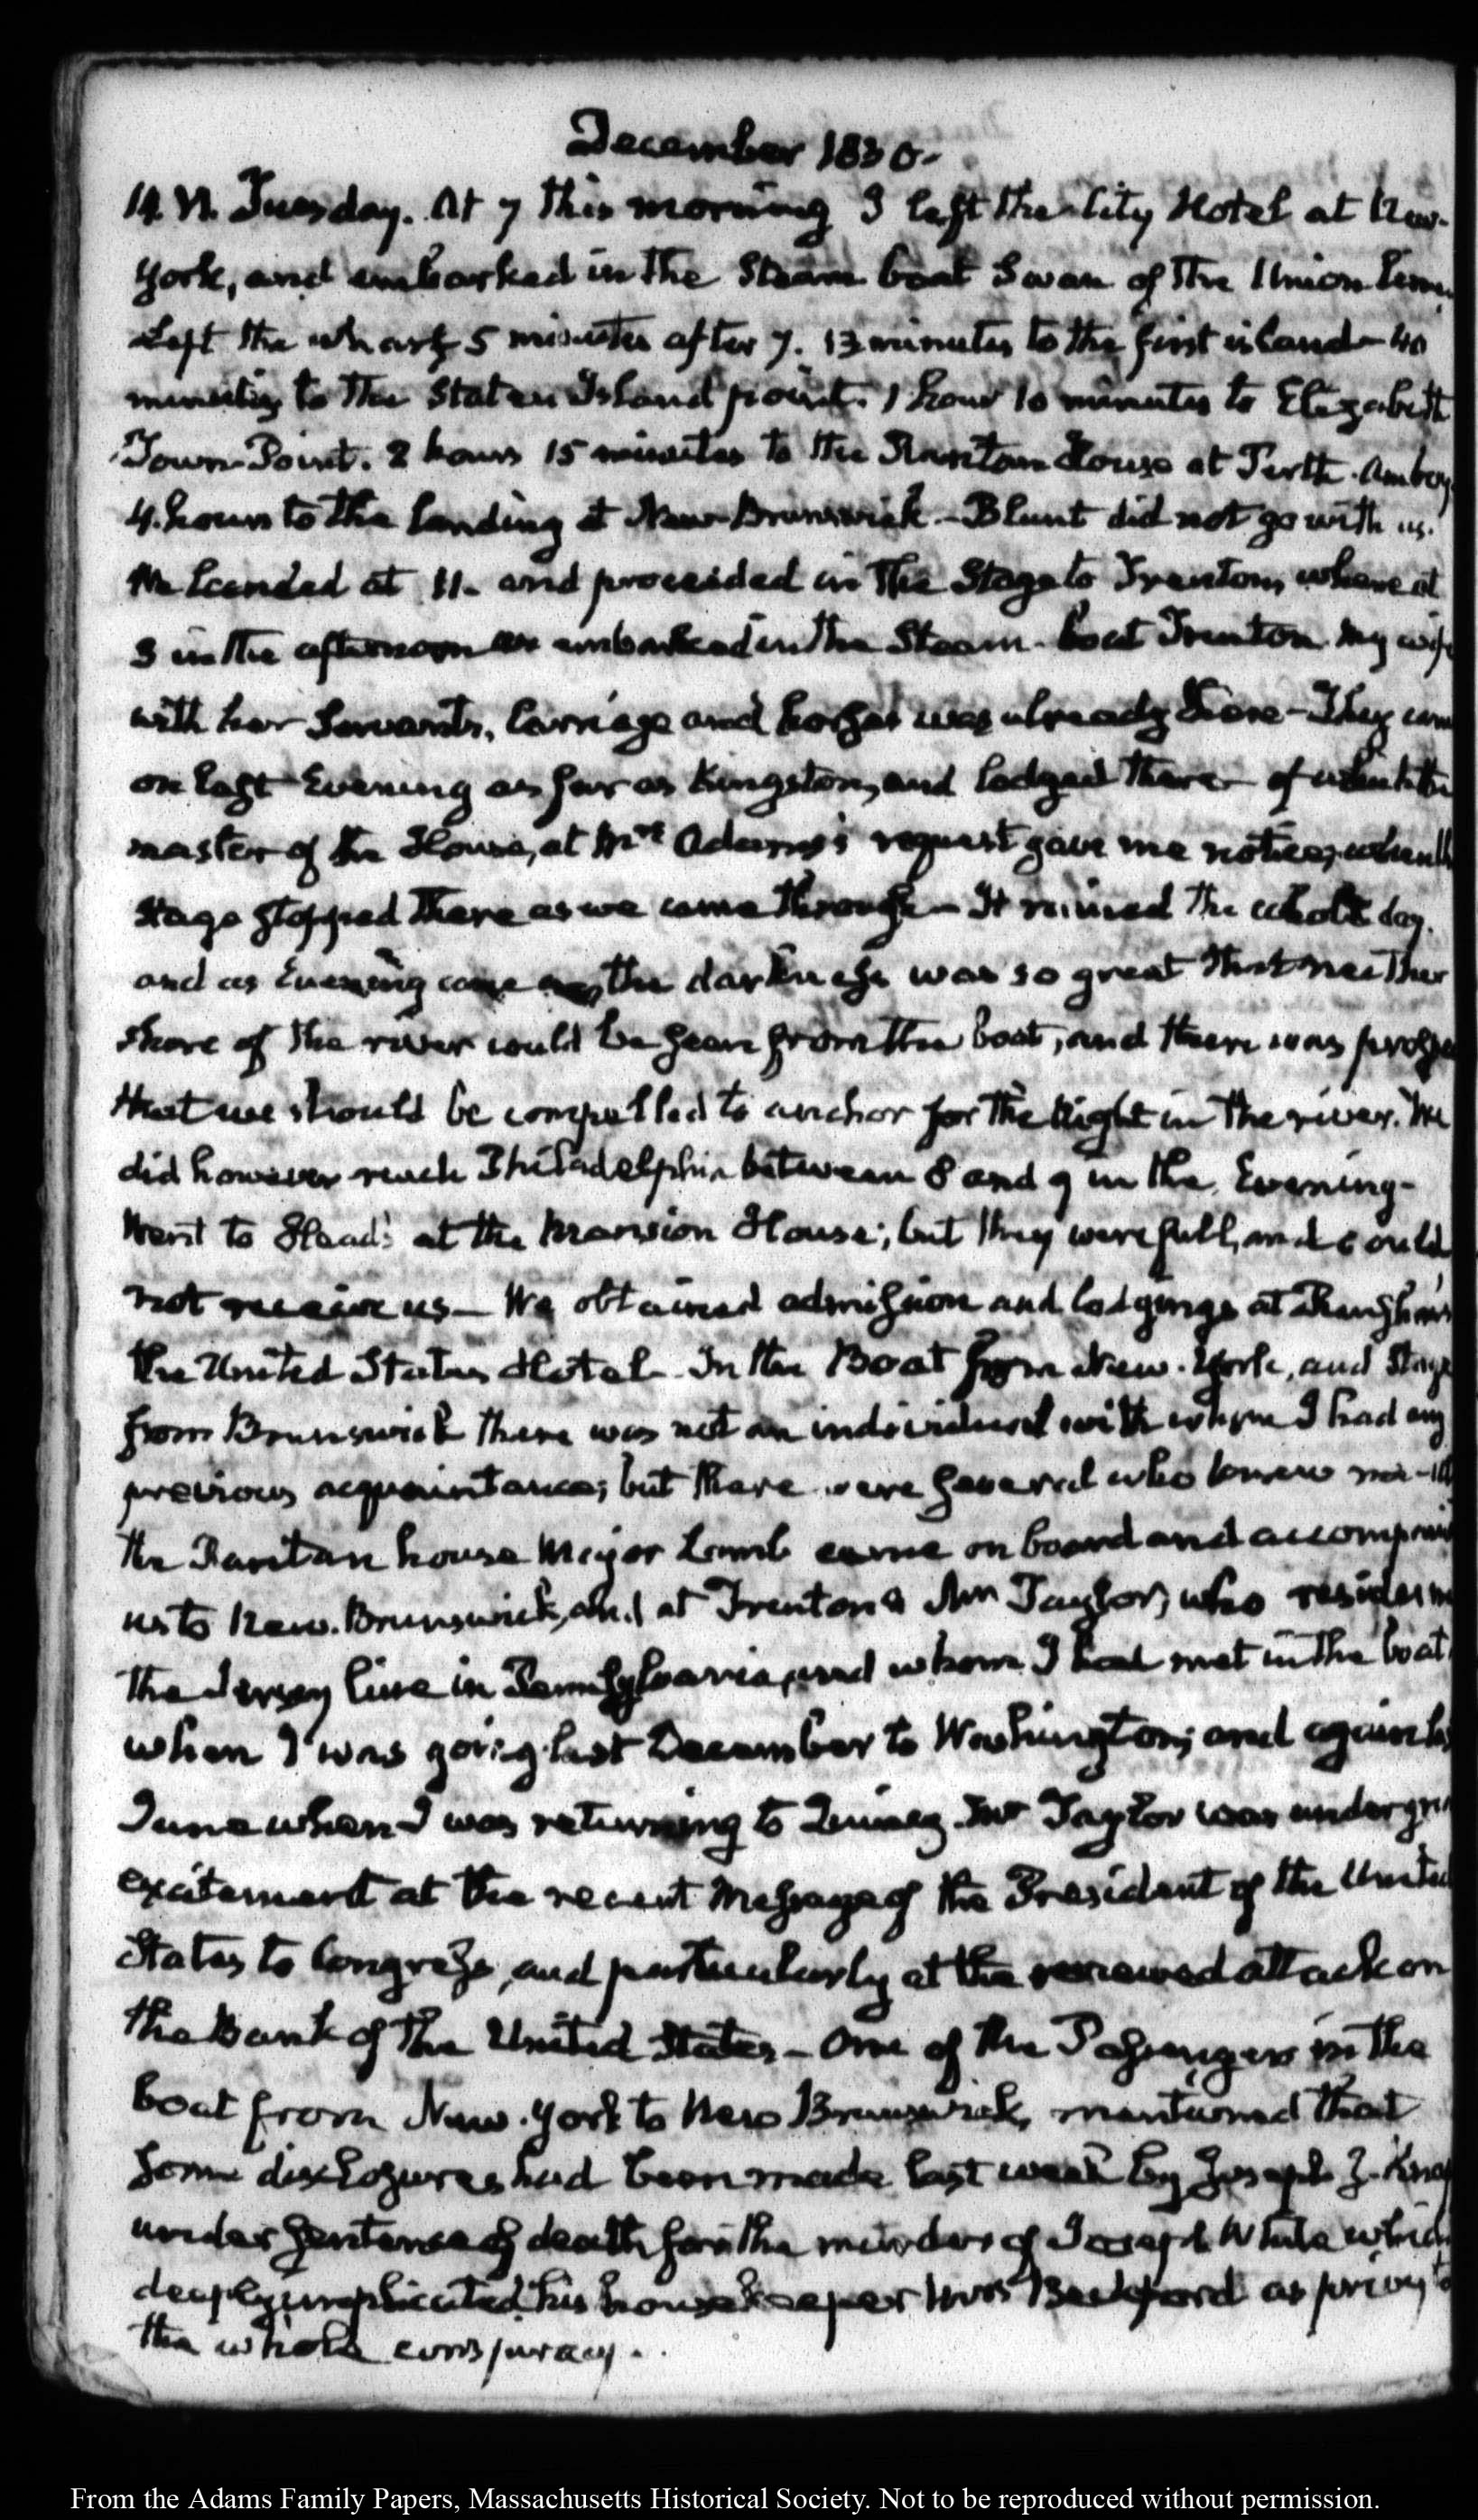 December 1830.
14. VI. Tuesday. At 7 this morning I left the City Hotel at New-
York, and embarked in the Steam boat Swan of the Union Line.
Left the wharf 5 minutes after 7. 13 minutes to the first island - 40
minutes to the Staten Island point. 1 hour 10 minutes to Elizabeth
Town Point. 2 hours 15 minutes to the Raritan House at Perth-Amboy
4. hours to the landing at New-Brunswick - Blunt did not go with us.
We landed at 11. and proceeded in the Stage to Trenton, where at
3 in the afternoon we embarked in the Steam-boat Trenton. My wife
with her Servants, Carriage and horses was already there - They came
on last Evening as far as Kingston, and lodged there - of which the
master of the House, at Mrs Adams's request gave me notice, when the
Stage stopped there as we came through - It rained the whole day.
and as Evening came on, the darkness was so great that neither
shore of the river could be seen from the boat, and there was
that we should be compelled to anchor for the Night in the river. We
did however reach Philadelphia between 8 and 9 in the Evening -
Went to Head's at the Mansion House; but they were full, and could
not receive us - We obtained admission and lodgings at
the United States Hotel - In the Boat from New-York, and Stage
from Brunswick there was not an individual with whom I had any
previous acquaintance; but there were several who knew me - At
the Raritan house Major Lomb came on board and accompanied
us to New-Brunswick, and at Trenton a Mr Taylor, who resides
the Jersey line in Pennsylvania, and whom I had met in the boat
when I was going last December to Washington; and again in
June when I was returning to Quincy. Mr Taylor was under great
excitement at the recent Message of the President of the United
States to Congress, and particularly at the renewed attack on
the Bank of the United States - One of the Passengers in the
boat from New-York to New Brunswick, mentioned that
some disclosures had been made last week by Joseph J. Knapp
under sentence of death for the murder of Joseph White which
deeply implicated his housekeeper Mrs Beckford as privy to
the whole conspiracy.
From the Adams Family Papers, Massachusetts Historical Society. Not to be reproduced without permission.